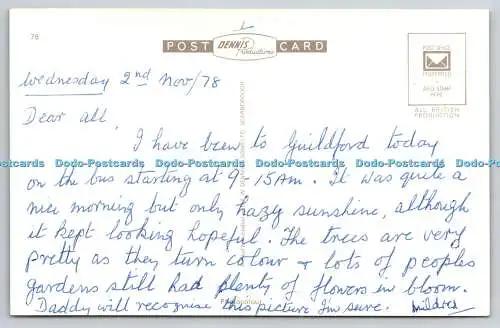 78
POST DENNIS Productions CARD
POST OFFICE
PREFERRED
ALL BRITISH
PRODUCTION
Wednesday 2nd Nov/78
Dear all,
I have been to Guildford today
Dodo-Postcards Dodo-Postcards Dodo-Postcards Dodo-Postcards Dodo-Postcards
on the bus starting at 9-15AM. It was quite a
nice morning but only hazy sunshine, although
it kept looking hopeful. The trees are very
pretty as they turn colour & lots of peoples
gardens still had plenty of flowers in bloom.
Daddy will recognise this picture I'm sure. Mildred